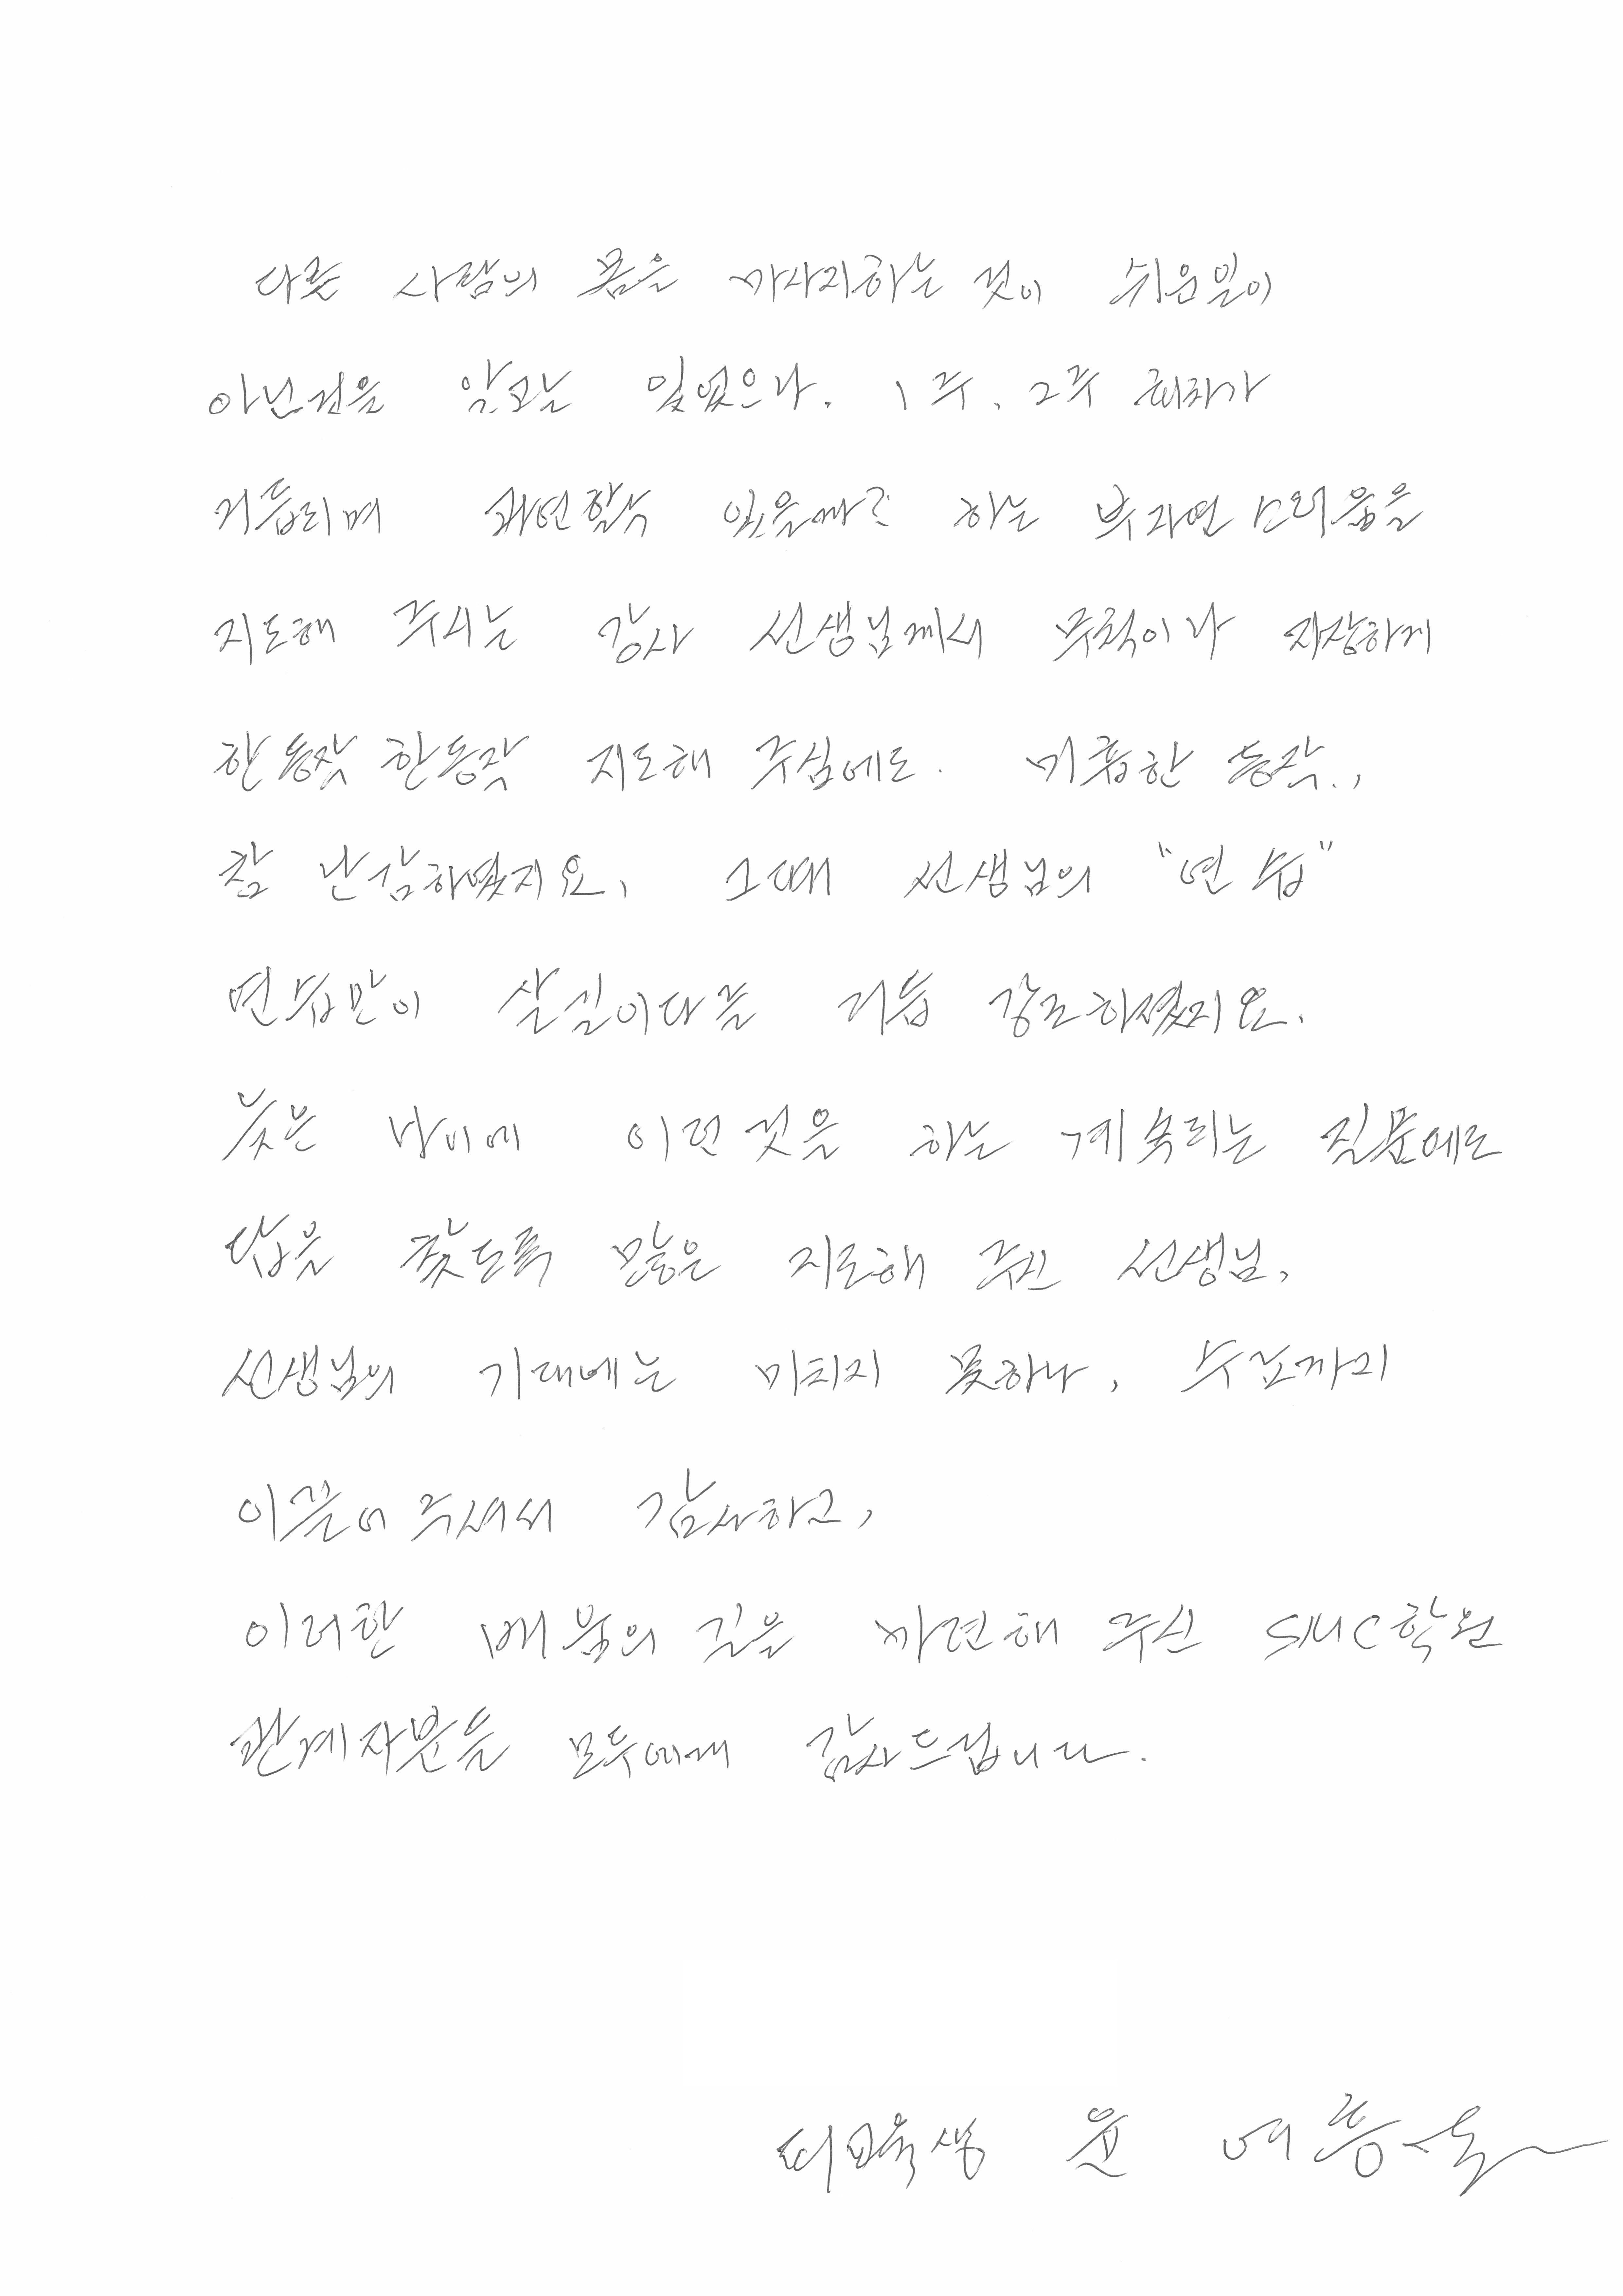 다른 사람의 몸을 마사지하는 것이 쉬운일이
아닌것을 알고는 있었으나. 1주, 2주 회차가
거듭되며 과연할수 있을까? 하는 부자연스러움을
지도해 주시는 강사 선생님께서 무척이나 자상하게
한동작 한동작 지도해 주심에도. 미흡한 동작.,
참 난감하였지요, 그때 선생님의 "연습"
연습만이 살길이다를 거듭 강조하셨지요.
늦은 나이에 이런것을 하는 계속되는 질문에도
답을 찾도록 많은 지도해 주신 선생님,
선생님의 기대에는 미치지 못하나, 수료까지
이끌어 주셔서 감사하고,
이러한 배움의 길을 마련해 주신 SMC학원
관계자분들 모두에게 감사드립니다.
피교육생 윤